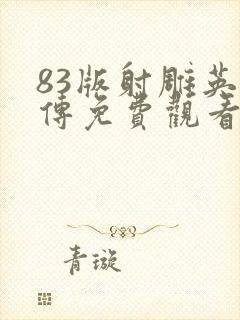 83版射雕英
傳免費觀看
青璇